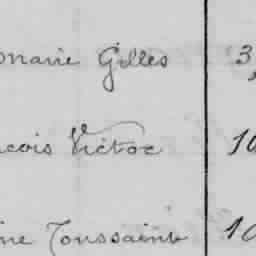 onarie Gilles 3
ncois Victor 10
ine Toussaint 10